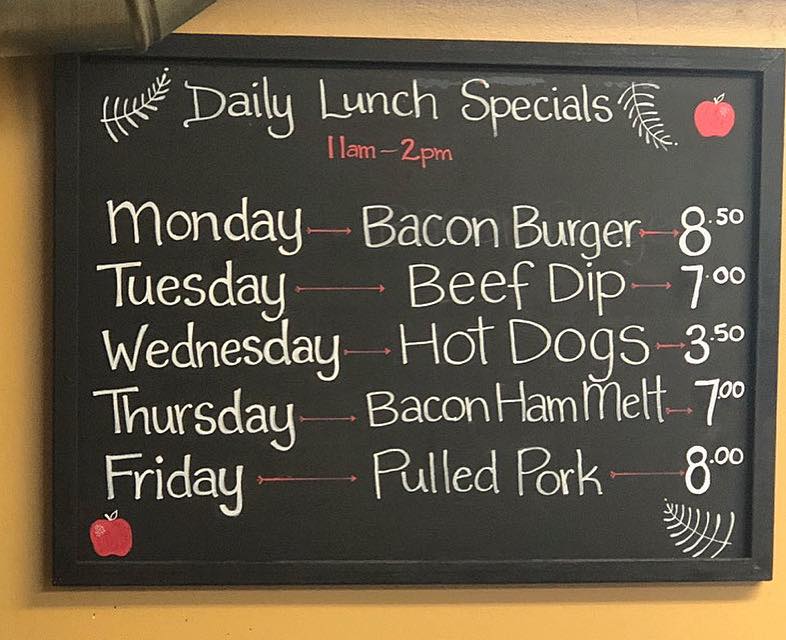 Daily Lunch Specials
11am-2pm
Monday → Bacon Burger → 8.50
Tuesday → Beef Dip → 7.00
Wednesday → Hot Dogs → 3.50
Thursday → Bacon Ham Melt → 7.00
Friday → Pulled Pork → 8.00